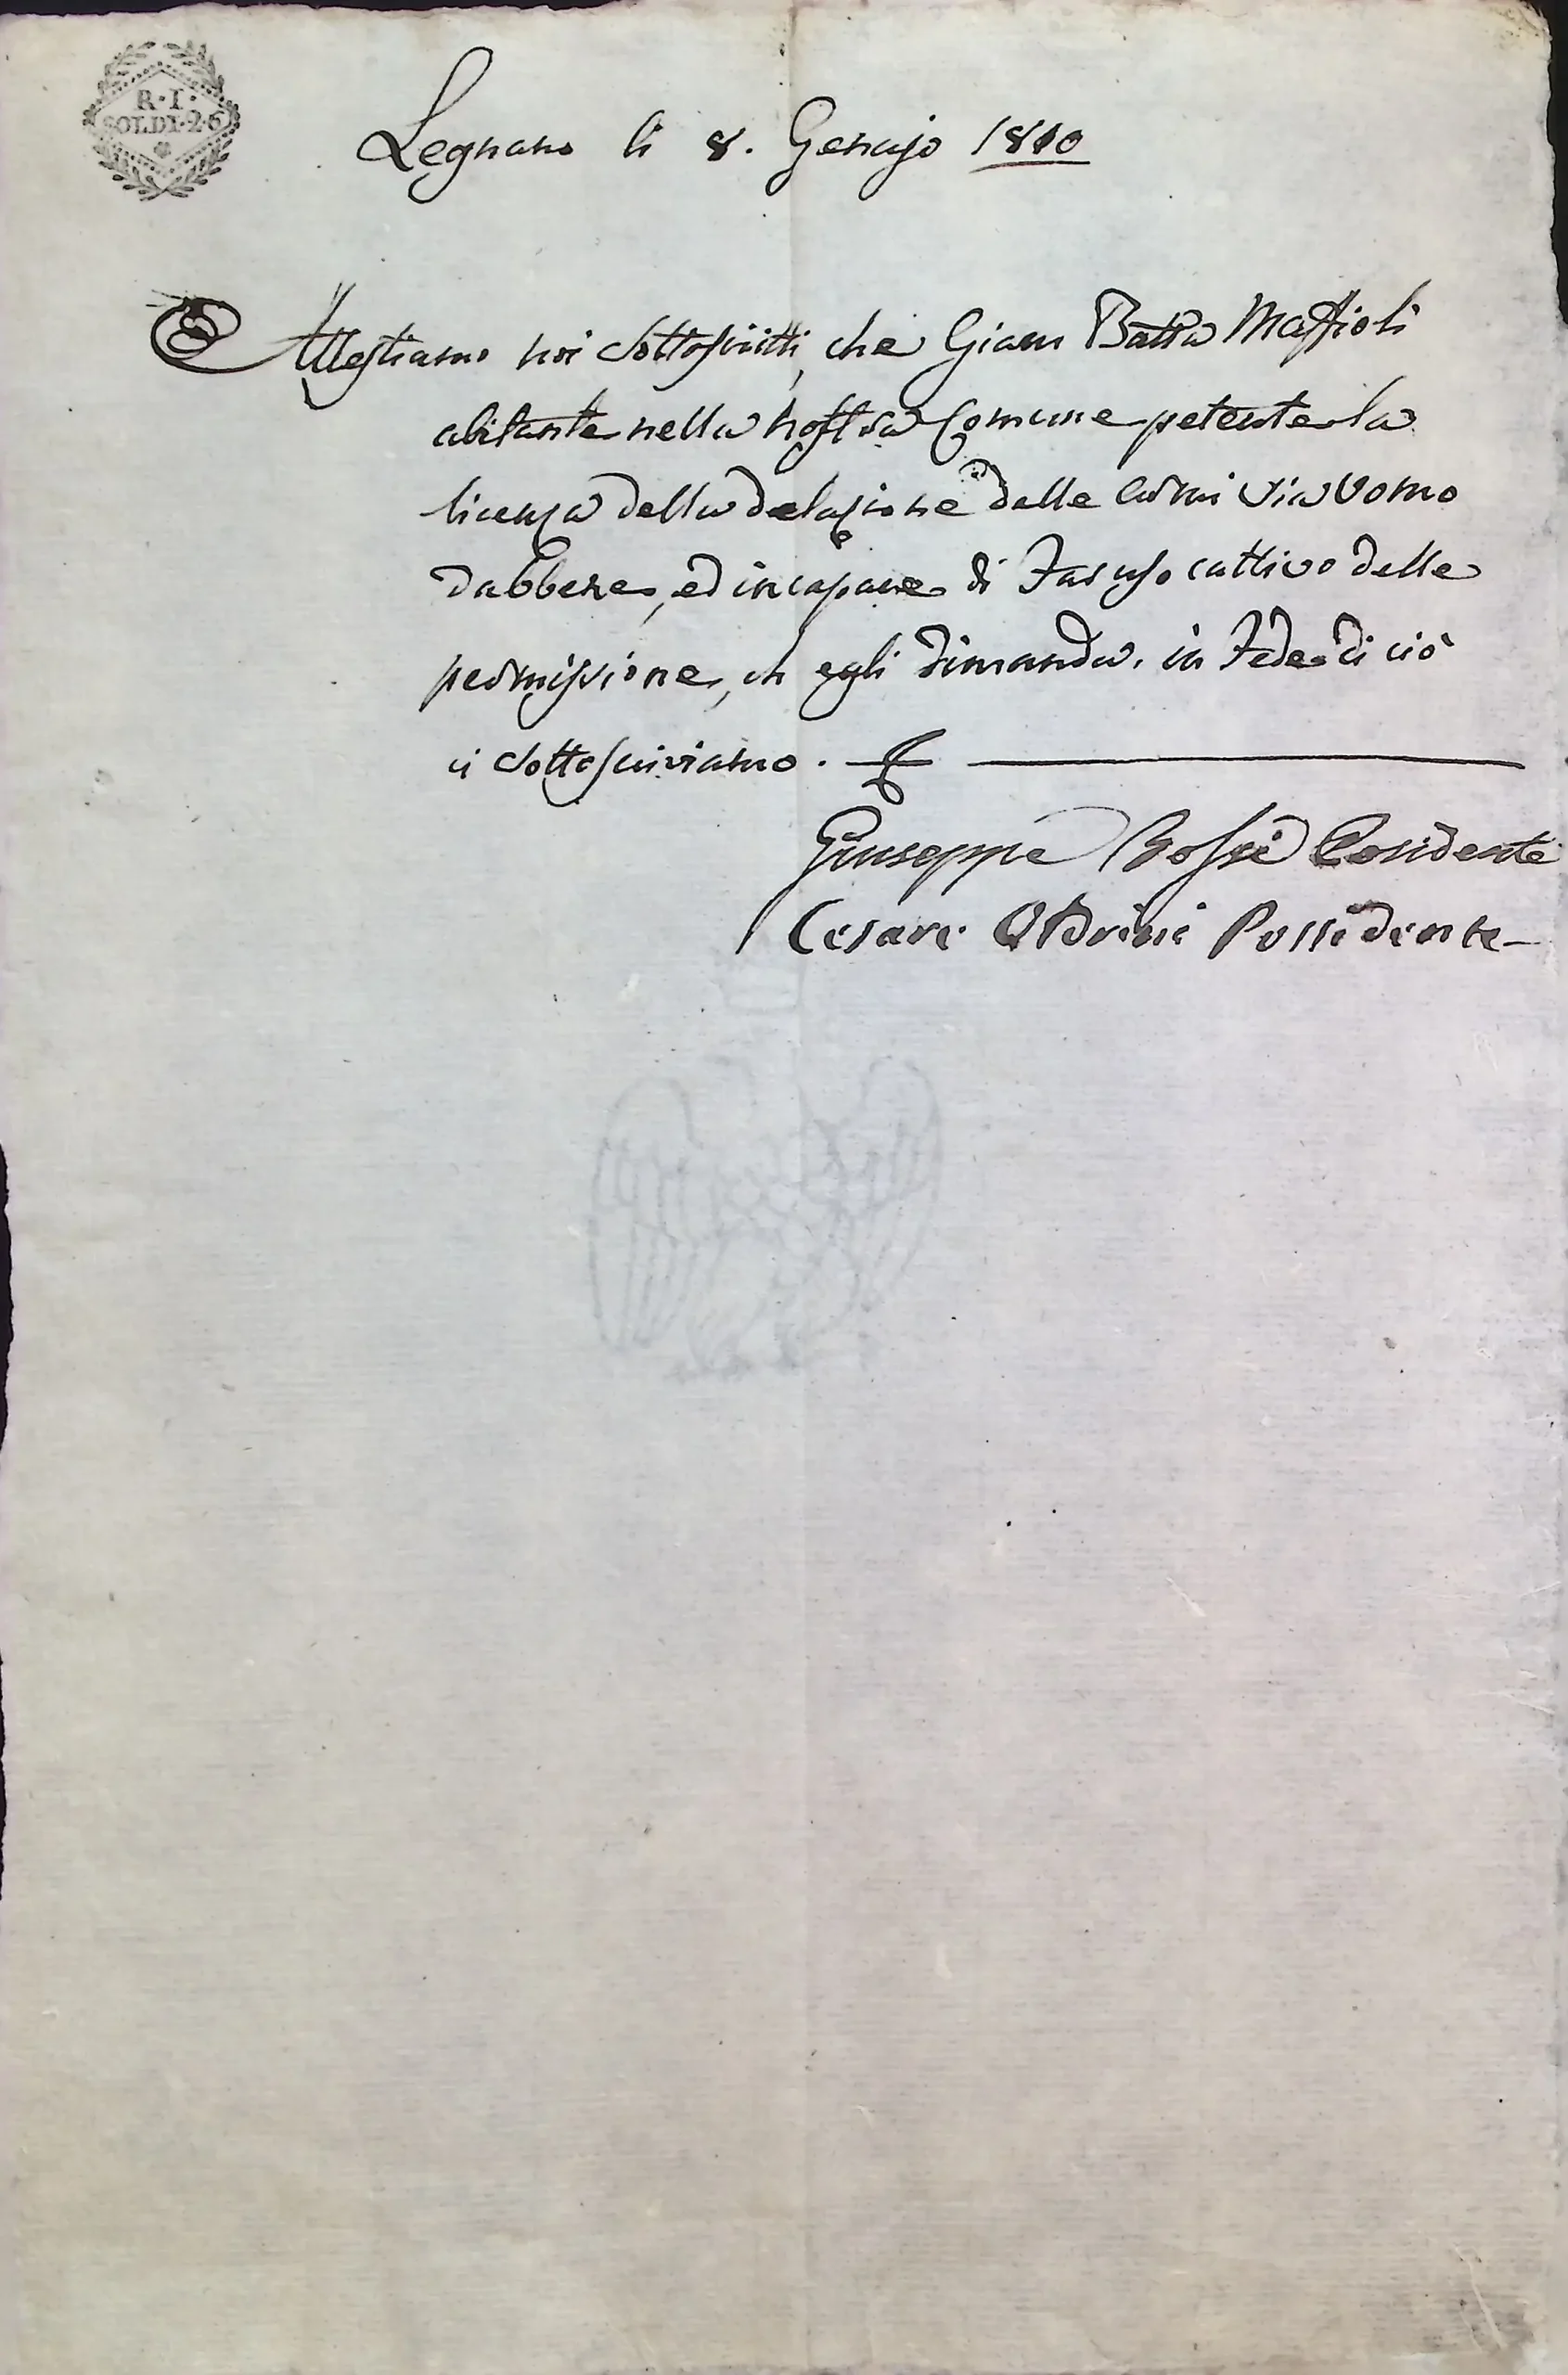 R·I·
SOLDI·2·6
Legnano li 8. Genajo 1810
Attestiamo noi sottoscritti, che Giam Batta Maffioli
abitante nella nostra Comune petente la
licenza della delazione delle Armi sia Uomo
dabbene, ed incapace di far uso cattivo della
permissione, ch egli dimanda. in fede di ciò
ci sottoscriviamo.
Giuseppe Bossi Possidente
Cesare Oldrini Possidente